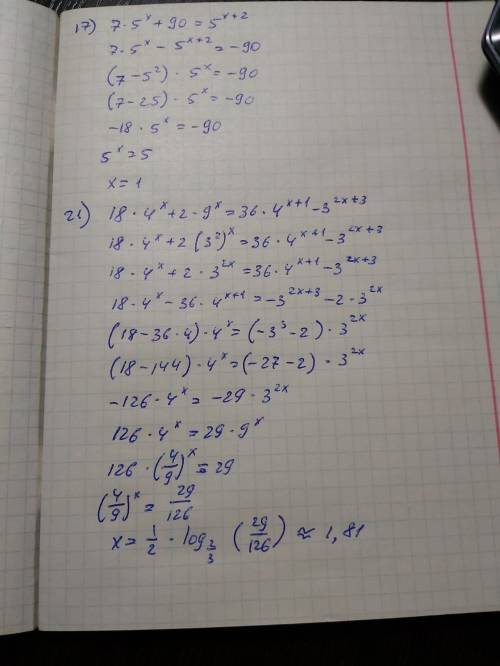 17) 7·5^x + 90 = 5^{x+2}
7·5^x − 5^{x+2} = −90
(7−5²)·5^x = −90
(7−25)·5^x = −90
−18·5^x = −90
5^x = 5
x = 1
21) 18·4^x + 2·9^x = 36·4^{x+1} − 3^{2x+3}
18·4^x + 2(3²)^x = 36·4^{x+1} − 3^{2x+3}
18·4^x + 2·3^{2x} = 36·4^{x+1} − 3^{2x+3}
18·4^x − 36·4^{x+1} = −3^{2x+3} − 2·3^{2x}
(18−36·4)·4^x = (−3³−2)·3^{2x}
(18−144)·4^x = (−27−2)·3^{2x}
−126·4^x = −29·3^{2x}
126·4^x = 29·9^x
126·(4/9)^x = 29
(4/9)^x = 29/126
x = 1/2·log_{2/3}(29/126) ≈ 1,81